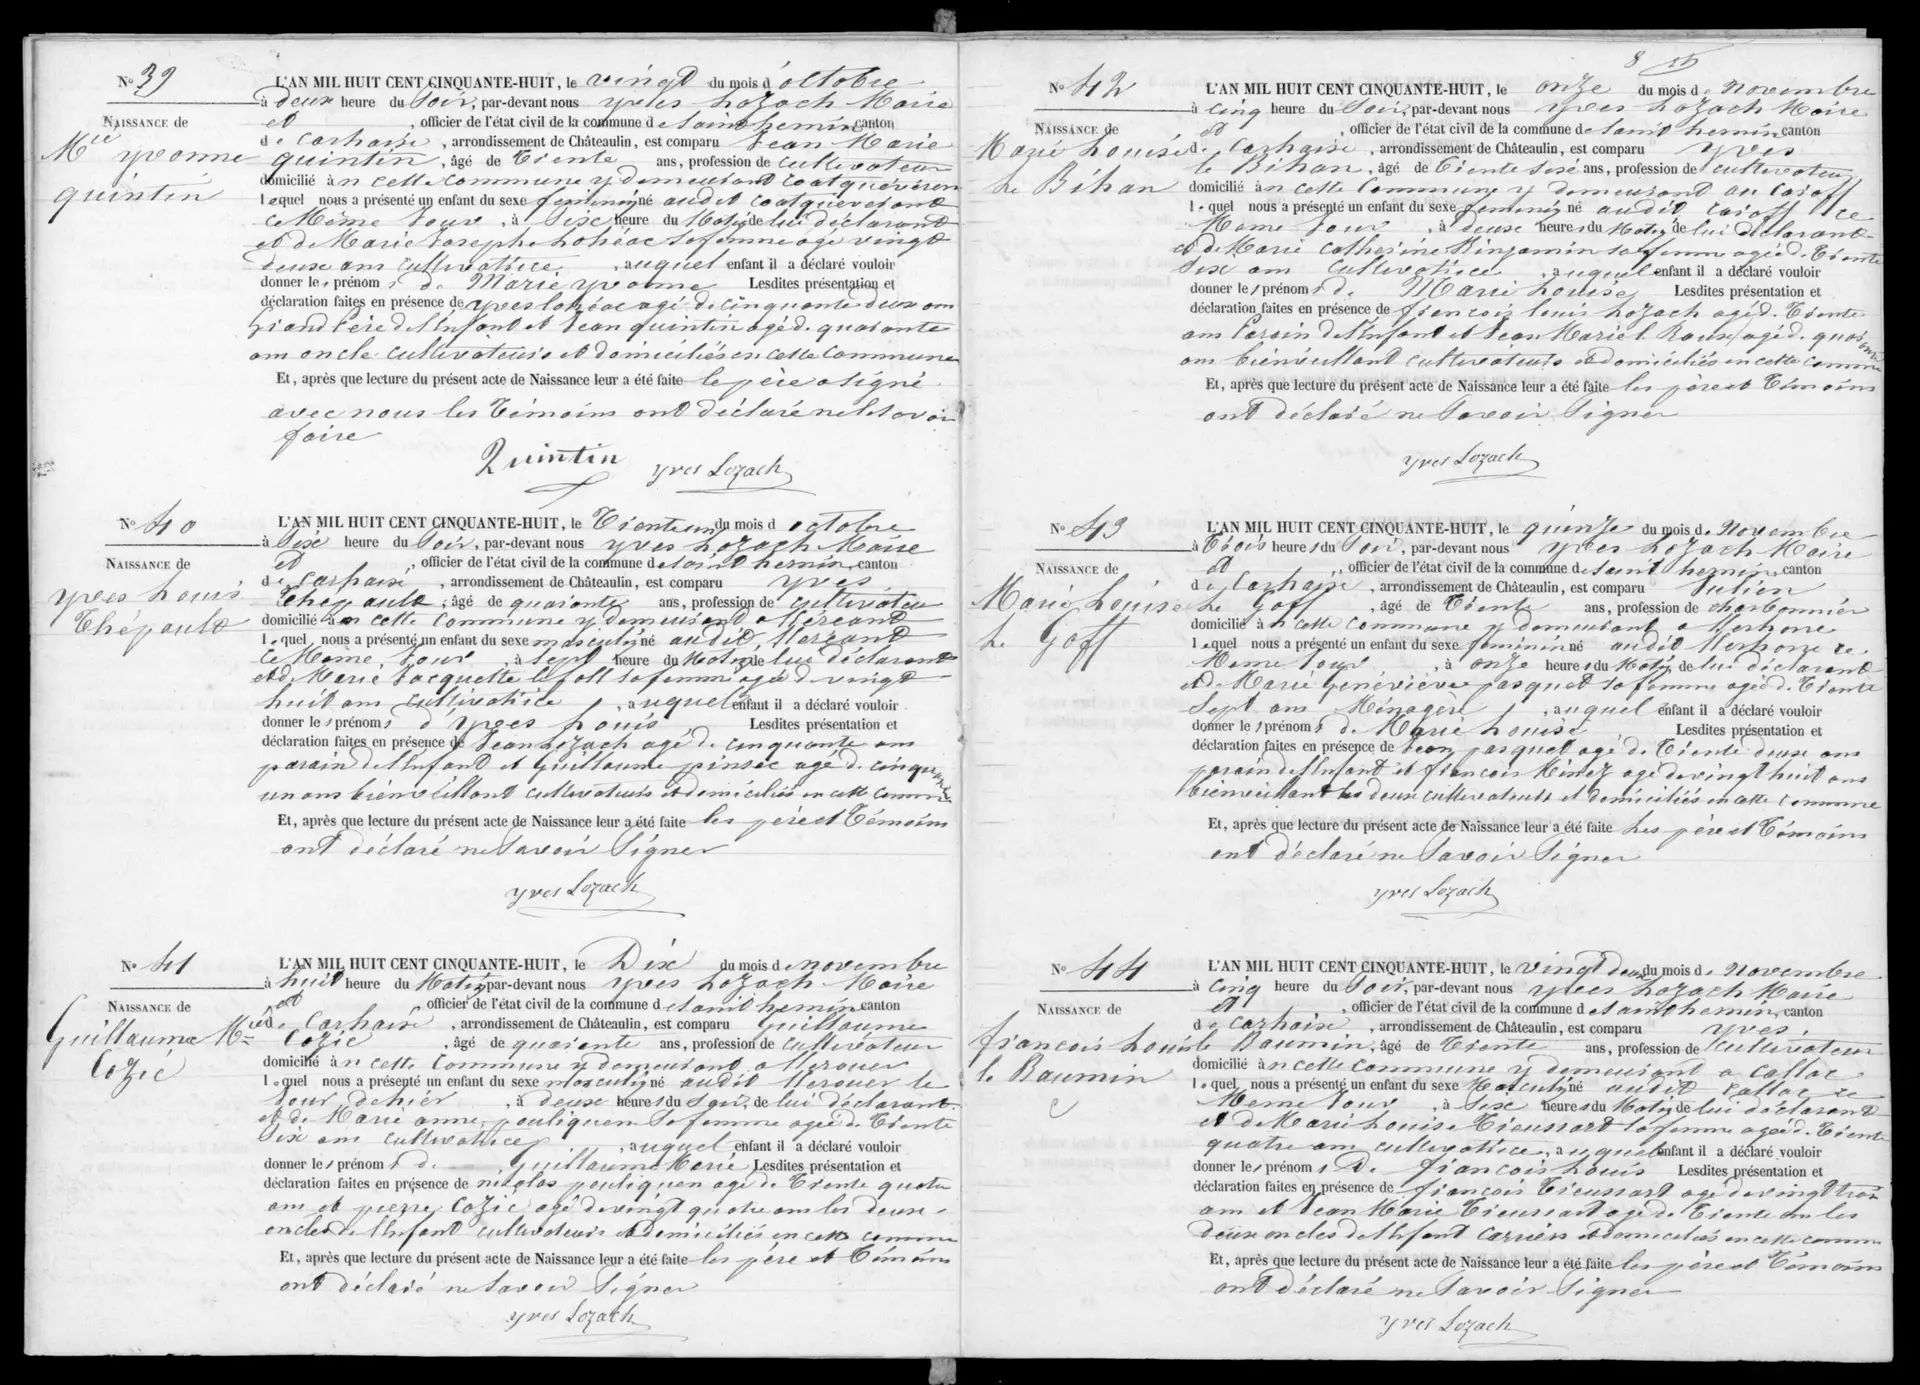 No 39
NAISSANCE de
Mie yvonne
quintin
L'AN MIL HUIT CENT CINQUANTE-HUIT, le vingt du mois d'octobre
à deux heure du Soir, par-devant nous yves Lozach Maire
et , officier de l'état civil de la commune de Saint hernin canton
de Carhaix , arrondissement de Châteaulin, est comparu Jean Marie
quintin , âgé de Trente ans, profession de cultivateur
domicilié à n cette commune y demeurant
lequel nous a présenté un enfant du sexe feminin, né audit
ce Même Jour , à Six heure du Matin, de lui déclarant
et de Marie Josephe Lohéac sa femme age vingt
deux ans cultivatrice , auquel enfant il a déclaré vouloir
donner les prénoms de Marie yvonne Lesdites présentation et
déclaration faites en présence de yves Lohéac agé de cinquante deux ans
Grand Père de l'Enfant et Jean quintin agé de quarante
ans oncle cultivateurs et domiciliés en cette commune
Et, après que lecture du présent acte de Naissance leur a été faite le père a signé
avec nous les Témoins ont déclaré ne le savoir
faire
Quintin yves Lozach
No 40
NAISSANCE de
yves Louis
Thépault
L'AN MIL HUIT CENT CINQUANTE-HUIT, le Trente un du mois d octobre
à Six heure du Soir, par-devant nous yves Lozach Maire
et , officier de l'état civil de la commune de Saint hernin canton
de Carhaix , arrondissement de Châteaulin, est comparu yves
Thépault , âgé de quarante ans, profession de cultivateur
domicilié à n cette commune y demeurant a
lequel nous a présenté un enfant du sexe masculin, né audit
ce Même Jour , à Sept heure du Matin, de lui déclarant
et de Marie Jacquette le goff sa femme agée de vingt
huit ans cultivatrice , auquel enfant il a déclaré vouloir
donner les prénoms d'yves Louis Lesdites présentation et
déclaration faites en présence de Jean Lozach agé de cinquante ans
parain de l'Enfant et Guillaume pinsec agé de cinquante
un ans bienveillant cultivateurs et domiciliés en cette commune
Et, après que lecture du présent acte de Naissance leur a été faite les père et Témoins
ont déclaré ne Savoir Signer
yves Lozach
No 41
NAISSANCE de
Guillaume Mie
Cozic
L'AN MIL HUIT CENT CINQUANTE-HUIT, le Dix du mois de novembre
à huit heure du Matin, par-devant nous yves Lozach Maire
et , officier de l'état civil de la commune de Saint hernin canton
de Carhaix , arrondissement de Châteaulin, est comparu Guillaume
Cozic , âgé de quarante ans, profession de cultivateur
domicilié à n cette commune y demeurant a Kerouer
lequel nous a présenté un enfant du sexe masculin, né audit Kerouer le
Jour dehier , à deux heures du Soir, de lui déclarant
et de Marie anne pouliquen sa femme agée de Trente
Six ans cultivatrice , auquel enfant il a déclaré vouloir
donner les prénoms de Guillaume Marie Lesdites présentation et
déclaration faites en présence de nicolas pouliquen agé de Trente quatre
ans et pierre Cozic agé de vingt quatre ans les deux
oncles de l'Enfant cultivateurs et domiciliés en cette commune
Et, après que lecture du présent acte de Naissance leur a été faite les père et Témoins
ont déclaré ne Savoir Signer
yves Lozach
8
No 42
NAISSANCE de
Marie Louise
Le Bihan
L'AN MIL HUIT CENT CINQUANTE-HUIT, le onze du mois de Novembre
à Cinq heure du Soir, par-devant nous yves Lozach Maire
et , officier de l'état civil de la commune de Saint hernin canton
de Carhaix , arrondissement de Châteaulin, est comparu yves
le Bihan , âgé de Trente Six ans, profession de cultivateur
domicilié à n cette Commune y demeurant au Caroff
lequel nous a présenté un enfant du sexe feminin, né audit Caroff ce
Meme Jour , à deux heures du Matin, de lui déclarant
et de Marie Catherine Binjamin sa femme agée de Trente
Six ans Cultivatrice , auquel enfant il a déclaré vouloir
donner les prénoms de Marie Louise Lesdites présentation et
déclaration faites en présence de françois Louis Lozach agé de Trente
ans Parain de l'Enfant et Jean Marie L Roux agé de quarante
ans bienveillant cultivateurs et domiciliés en cette commune
Et, après que lecture du présent acte de Naissance leur a été faite les père et Témoins
ont déclaré ne Savoir Signer
yves Lozach
No 43
NAISSANCE de
Marie Louise
Le Goff
L'AN MIL HUIT CENT CINQUANTE-HUIT, le quinze du mois de Novembre
à Trois heures du Soir, par-devant nous yves Lozach Maire
et , officier de l'état civil de la commune de Saint hernin canton
de Carhaix , arrondissement de Châteaulin, est comparu Julien
Le Goff , âgé de Trente ans, profession de charbonnier
domicilié à n cette commune y demeurant a
lequel nous a présenté un enfant du sexe feminin né audit ce
Meme Jour , à onze heures du Matin, de lui déclarant
et de Marie geneviève pasquet sa femme agée de Trente
Sept ans Menagère , auquel enfant il a déclaré vouloir
donner les prénoms de Marie Louise Lesdites présentation et
déclaration faites en présence de Jean pasquet agé de Trente deux ans
parain de l'Enfant et françois Minez agé de vingt huit ans
bienveillant les deux cultivateurs et domiciliés en cette commune
Et, après que lecture du présent acte de Naissance leur a été faite Les père et Témoins
ont déclaré ne Savoir Signer
yves Lozach
No 44
NAISSANCE de
françois Louis
le Baumin
L'AN MIL HUIT CENT CINQUANTE-HUIT, le vingt deux du mois de Novembre
à Cinq heure du Soir, par-devant nous yves Lozach Maire
et , officier de l'état civil de la commune de Saint hernin canton
de Carhaix , arrondissement de Châteaulin, est comparu yves
le Baumin, âgé de Trente ans, profession de cultivateur
domicilié à n cette commune y demeurant a Callac
lequel nous a présenté un enfant du sexe Masculin, né audit Callac ce
Meme Jour , à Six heures du Matin, de lui déclarant
et de Marie Louise Tieussart sa femme agée de Trente
quatre ans cultivatrice , auquel enfant il a déclaré vouloir
donner les prénoms de françois Louis Lesdites présentation et
déclaration faites en présence de françois Tieussart agé de vingt trois
ans et Jean Marie Tieussart agé de Trente ans les
deux oncles de l'Enfant carriers et domiciliés en cette commune
Et, après que lecture du présent acte de Naissance leur a été faite les père et Témoins
ont déclaré ne Savoir Signer
yves Lozach